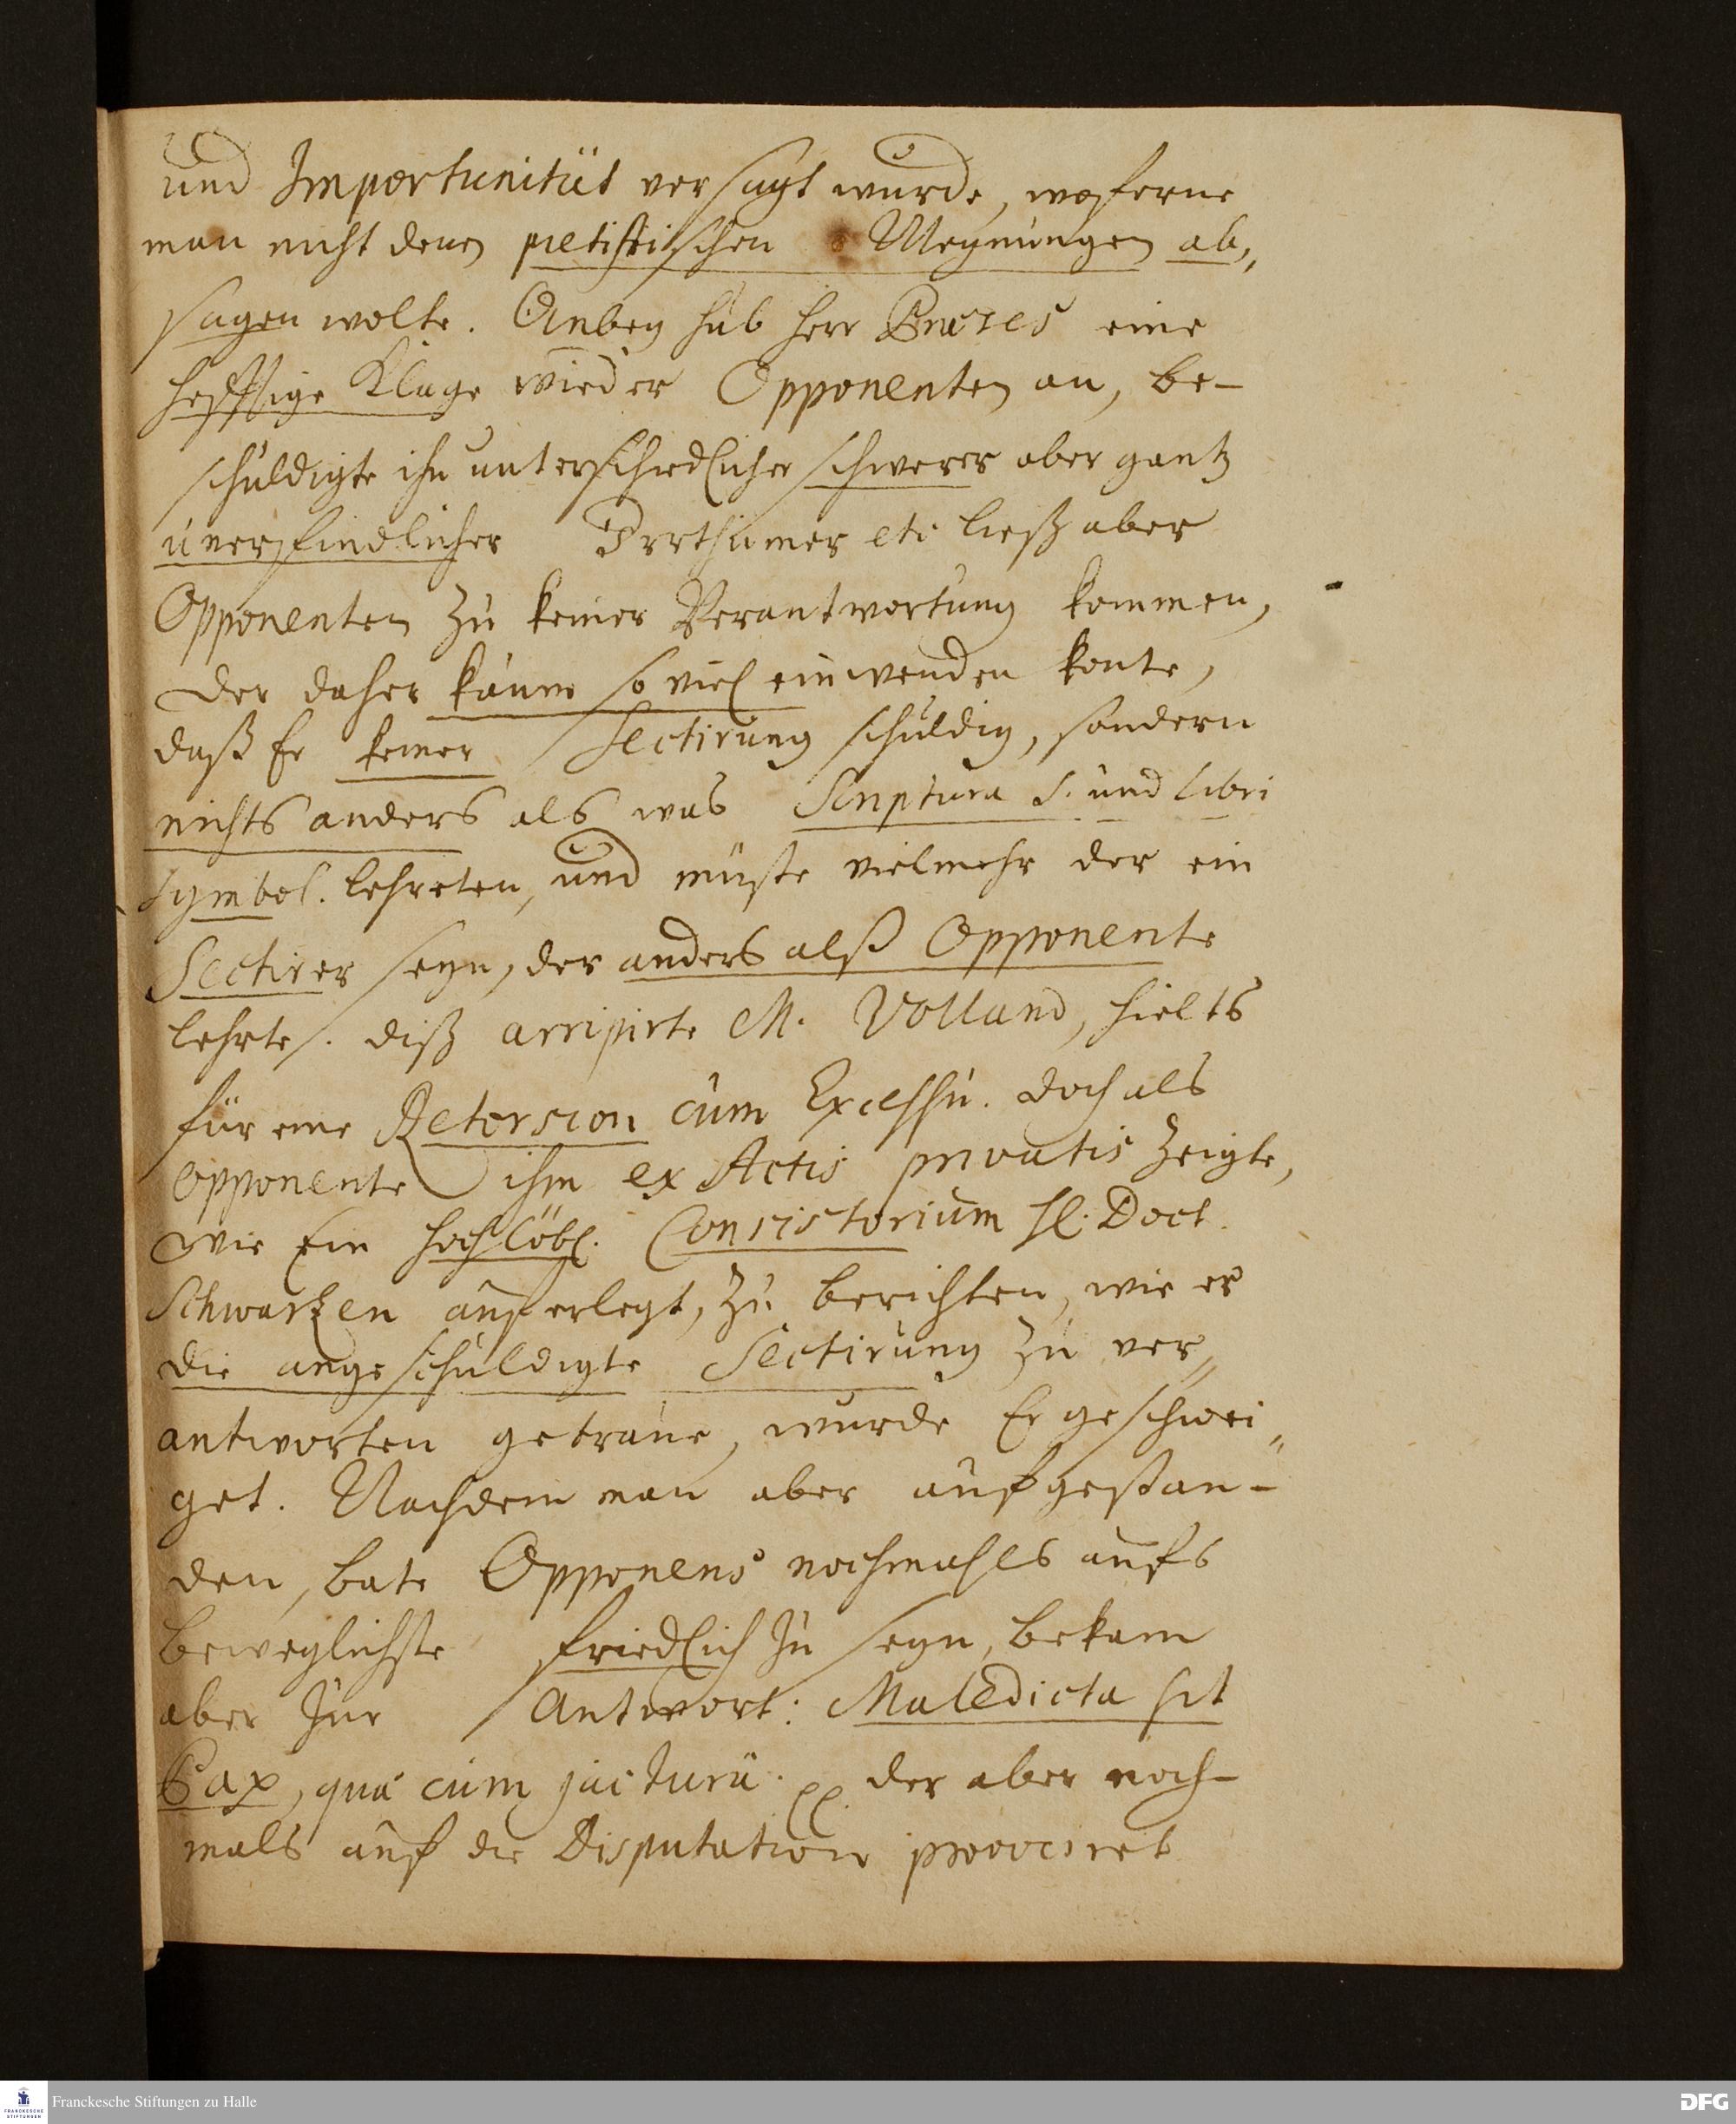 und Importunität versagt wurde, woferne
man nicht denen pietistischen Meynungen ab„
sagen wolte. Anbey hub Herr Praeses eine
hefftige Klage wieder Opponenten an, be-
schuldigte ihn unterschiedlicher schwerer aber gantz
unerfindlicher Irrthümer etc ließ aber
Opponenten zu keiner Verantwortung kommen,
der daher kaum so viel einwenden konte,
daß Er keiner Sectirung schuldig, sondern
nichts anders als was Scriptura S. und libri
symbol. lehreten, und müste vielmehr der ein
Sectirer seyn, der anders alß Opponente
lehrte. diß arripirte M. Volland, hielts
für eine Retorsion cum Excessu. doch als
Opponente ihm ex Actis privatis zeigte,
wie Ein hochlöbl. Consistorium H. Doct.
Schwartzen auferlegt, zu berichten, wie er
die angeschuldigte Sectirung zu ver„
antworten getraue, wurde Er geschwei„
get. Nachdem man aber aufgestan-
den, bate Opponens nochmahls aufs
beweglichste friedlich zu seyn, bekam
aber zur Antwort: Maledicta sit
Pax, qua cum jactura. pp. der aber noch-
mals auf die Disputation provociret
Franckesche Stiftungen zu Halle
FRANCKESCHE
STIFTUNGEN
DFG